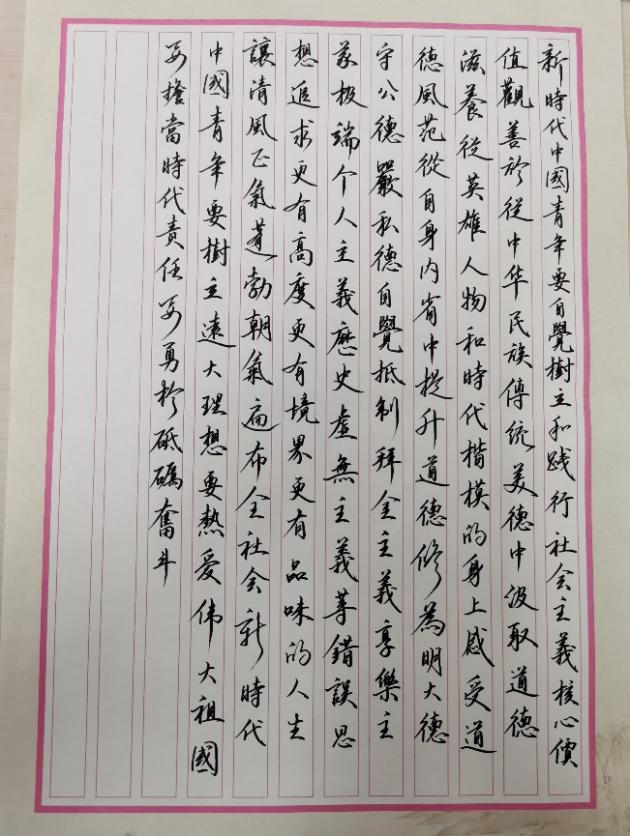 新時代中國青年要自覺樹立和践行社会主義核心價
值觀善於從中华民族傳统美德中汲取道德
滋養從英雄人物和時代楷模的身上感受道
德風范從自身内省中提升道德修為明大德
守公德嚴私德自覺抵制拜金主義享樂主
義极端个人主義歷史虚無主義等錯誤思
想追求更有高度更有境界更有品味的人生
讓清風正氣蓬勃朝氣遍布全社会新時代
中國青年要樹立遠大理想要熱爱伟大祖國
要擔當時代責任要勇於砥礪奮斗